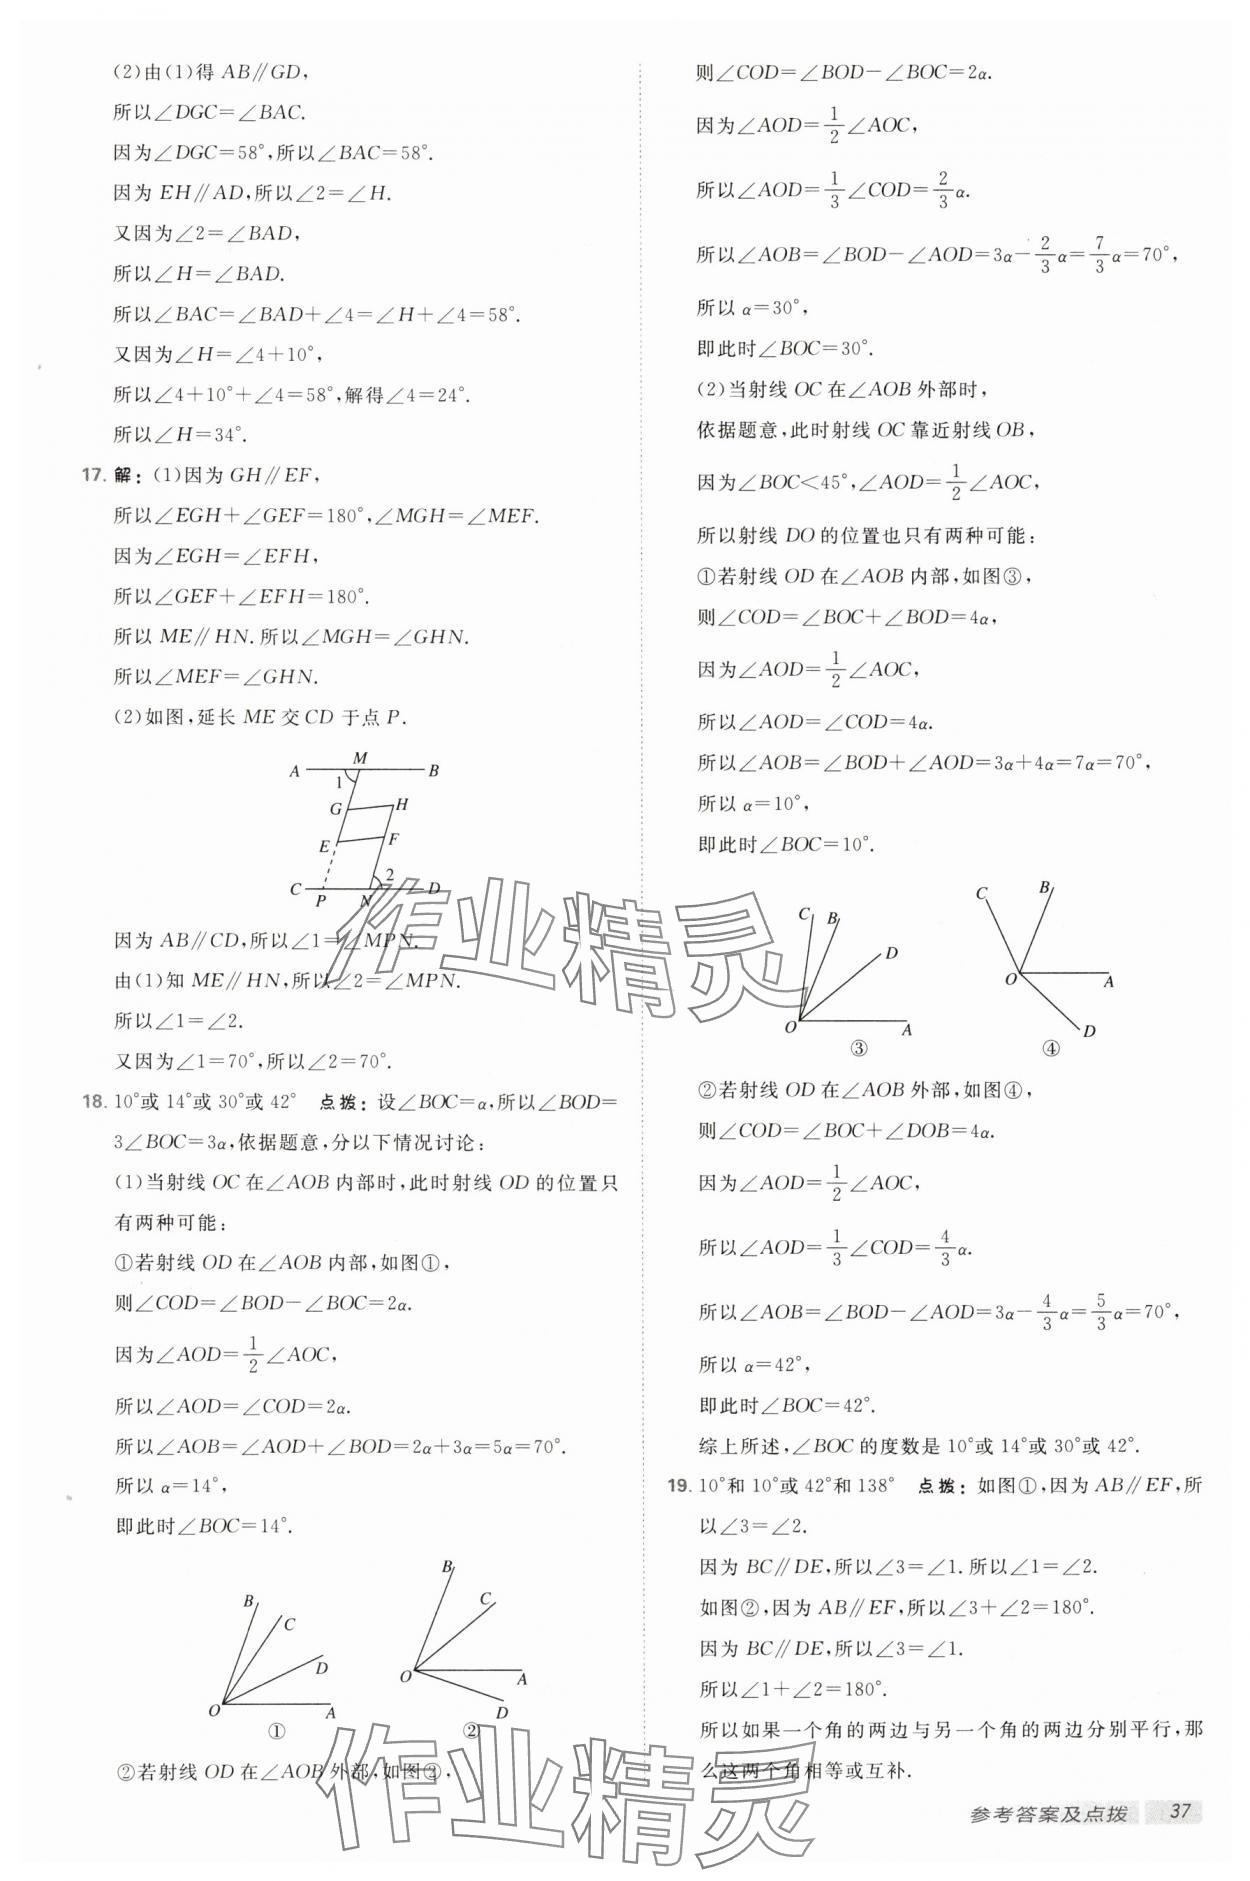 (2)由(1)得 AB∥GD,
所以∠DGC=∠BAC.
因为∠DGC=58°,所以∠BAC=58°.
因为 EH∥AD,所以∠2=∠H.
又因为∠2=∠BAD,
所以∠H=∠BAD.
所以∠BAC=∠BAD+∠4=∠H+∠4=58°.
又因为∠H=∠4+10°,
所以∠4+10°+∠4=58°,解得∠4=24°.
所以∠H=34°.
17. 解:(1)因为 GH∥EF,
所以∠EGH+∠GEF=180°,∠MGH=∠MEF.
因为∠EGH=∠EFH,
所以∠GEF+∠EFH=180°.
所以 ME∥HN.所以∠MGH=∠GHN.
所以∠MEF=∠GHN.
(2)如图,延长 ME 交 CD 于点 P.
M
A B
1
G H
E F
2
C P N D
因为 AB∥CD,所以∠1=∠MPN.
由(1)知 ME∥HN,所以∠2=∠MPN.
所以∠1=∠2.
又因为∠1=70°,所以∠2=70°.
18. 10°或 14°或 30°或 42° 点拨:设∠BOC=α,所以∠BOD=
3∠BOC=3α,依据题意,分以下情况讨论:
(1)当射线 OC 在∠AOB 内部时,此时射线 OD 的位置只
有两种可能:
①若射线 OD 在∠AOB 内部,如图①,
则∠COD=∠BOD-∠BOC=2α.
因为∠AOD=1/2∠AOC,
所以∠AOD=∠COD=2α.
所以∠AOB=∠AOD+∠BOD=2α+3α=5α=70°.
所以 α=14°,
即此时∠BOC=14°.
B C D O A ①
B C O A D ②
②若射线 OD 在∠AOB 外部,如图②,
则∠COD=∠BOD-∠BOC=2α.
因为∠AOD=1/2∠AOC,
所以∠AOD=1/3∠COD=2/3α.
所以∠AOB=∠BOD-∠AOD=3α-2/3α=7/3α=70°,
所以 α=30°,
即此时∠BOC=30°.
(2)当射线 OC 在∠AOB 外部时,
依据题意,此时射线 OC 靠近射线 OB,
因为∠BOC<45°,∠AOD=1/2∠AOC,
所以射线 DO 的位置也只有两种可能:
①若射线 OD 在∠AOB 内部,如图③,
则∠COD=∠BOC+∠BOD=4α,
因为∠AOD=1/2∠AOC,
所以∠AOD=∠COD=4α.
所以∠AOB=∠BOD+∠AOD=3α+4α=7α=70°,
所以 α=10°,
即此时∠BOC=10°.
C B D O A ③
C B O A D ④
②若射线 OD 在∠AOB 外部,如图④,
则∠COD=∠BOC+∠DOB=4α.
因为∠AOD=1/2∠AOC,
所以∠AOD=1/3∠COD=4/3α.
所以∠AOB=∠BOD-∠AOD=3α-4/3α=5/3α=70°,
所以 α=42°,
即此时∠BOC=42°.
综上所述,∠BOC 的度数是 10°或 14°或 30°或 42°.
19. 10°和 10°或 42°和 138° 点拨:如图①,因为 AB∥EF,所
以∠3=∠2.
因为 BC∥DE,所以∠3=∠1.所以∠1=∠2.
如图②,因为 AB∥EF,所以∠3+∠2=180°.
因为 BC∥DE,所以∠3=∠1.
所以∠1+∠2=180°.
所以如果一个角的两边与另一个角的两边分别平行,那
么这两个角相等或互补.
参考答案及点拨 37
作业精灵
作业精灵